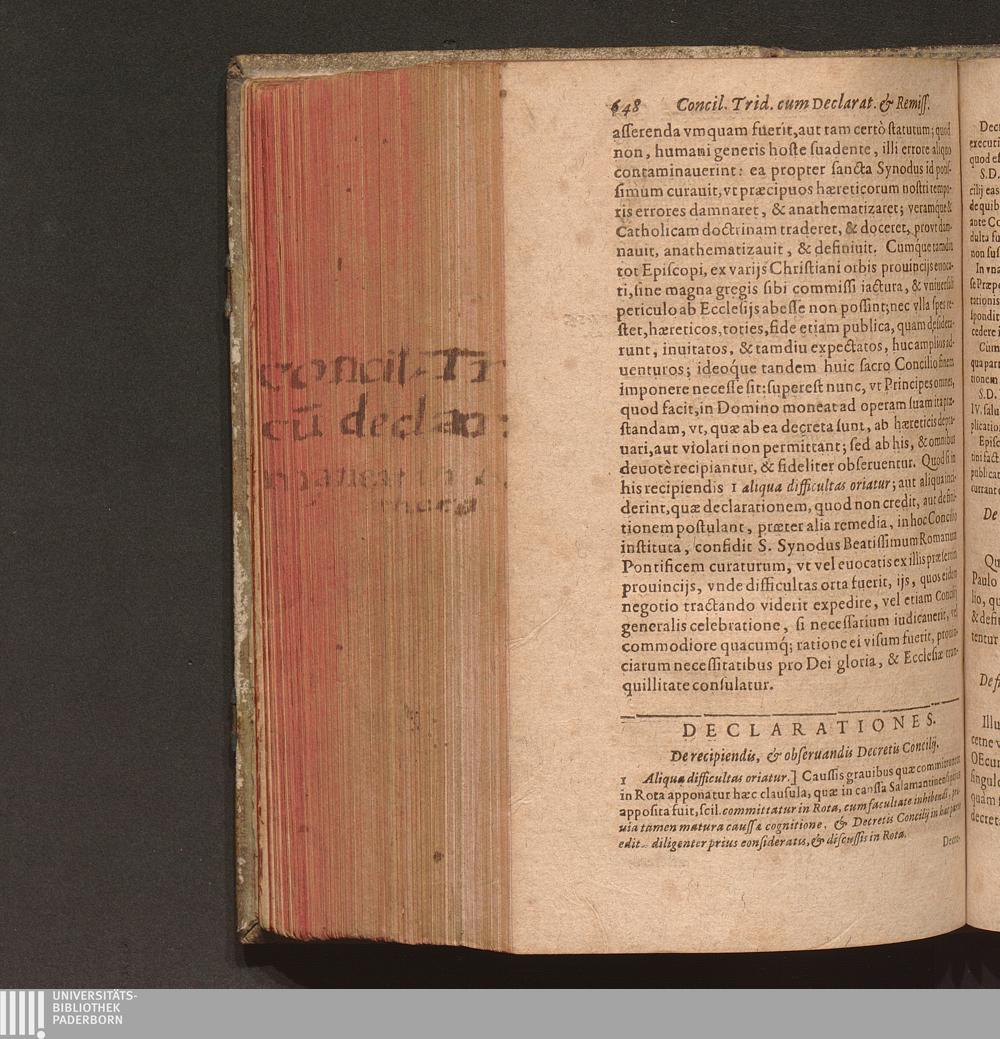 648 Concil. Trid. cum Declarat. & Remiss.
asserenda vmquam fuerit, aut tam certò statutum; quod
non, humani generis hoste suadente, illi errore aliquo
contaminauerint: ea propter sancta Synodus id potis-
simum curauit, vt præcipuos hæreticorum nostri tempo-
ris errores damnaret, & anathematizaret; veramque &
Catholicam doctrinam traderet, & doceret, provt dam-
nauit, anathematizauit, & definiuit. Cumque tamdiu
tot Episcopi, ex varijs Christiani orbis prouincijs euoca-
ti, sine magna gregis sibi commissi iactura, & vniuersali
periculo ab Ecclesijs abesse non possint; nec vlla spes re-
stet, hæreticos, toties, fide etiam publica, quam desidera-
runt, inuitatos, & tamdiu expectatos, huc amplius ad-
uenturos; ideoq́ue tandem huic sacro Concilio finem
imponere necesse sit: superest nunc, vt Principes omnes,
quod facit, in Domino moneat ad operam suam ita præ-
standam, vt, quæ ab ea decreta sunt, ab hæreticis depra-
uari, aut violari non permittant; sed ab his, & omnibus
deuotè recipiantur, & fideliter obseruentur. Quod si in
his recipiendis 1 aliqua difficultas oriatur; aut aliqua inci-
derint, quæ declarationem, quod non credit, aut defini-
tionem postulant, præter alia remedia, in hoc Concilio
instituta, confidit S. Synodus Beatissimum Romanum
Pontificem curaturum, vt vel euocatis ex illis præsertim
prouincijs, vnde difficultas orta fuerit, ijs, quos eidem
negotio tractando viderit expedire, vel etiam Concilij
generalis celebratione, si necessarium iudicauerit, vel
commodiore quacumq́; ratione ei visum fuerit, prouin-
ciarum necessitatibus pro Dei gloria, & Ecclesiæ tran-
quillitate consulatur.
DECLARATIONES.
De recipiendis, & obseruandis Decretis Concilij.
1 Aliqua difficultas oriatur.] Caussis grauibus quæ committuntur
in Rota apponatur hæc clausula, quæ in caussa Salamantinensi
apposita fuit, scil. committatur in Rota, cum facultate inhibendi, præ-
uia tamen matura caussæ cognitione, & Decretis Concilij in hac parte
edit. diligenter prius consideratis, & discussis in Rota.
Decre-
concil. Tr
cū declar:
Decr
executi
quod es
S.D.
cilij eas
de quib
ante Co
dulta fu
non sus
In vna
se Præpo
tationis
spondit
cedere i
Cum
qua part
tionem
S.D.
IV. salu
plicatio
Episc
tini fact
publicat
currant
De
Qu
Paulo
lio, qu
& defin
tentur
De fi
Illu
cetne v
OEcum
singulo
quam s
decret
UNIVERSITÄTS-
BIBLIOTHEK
PADERBORN